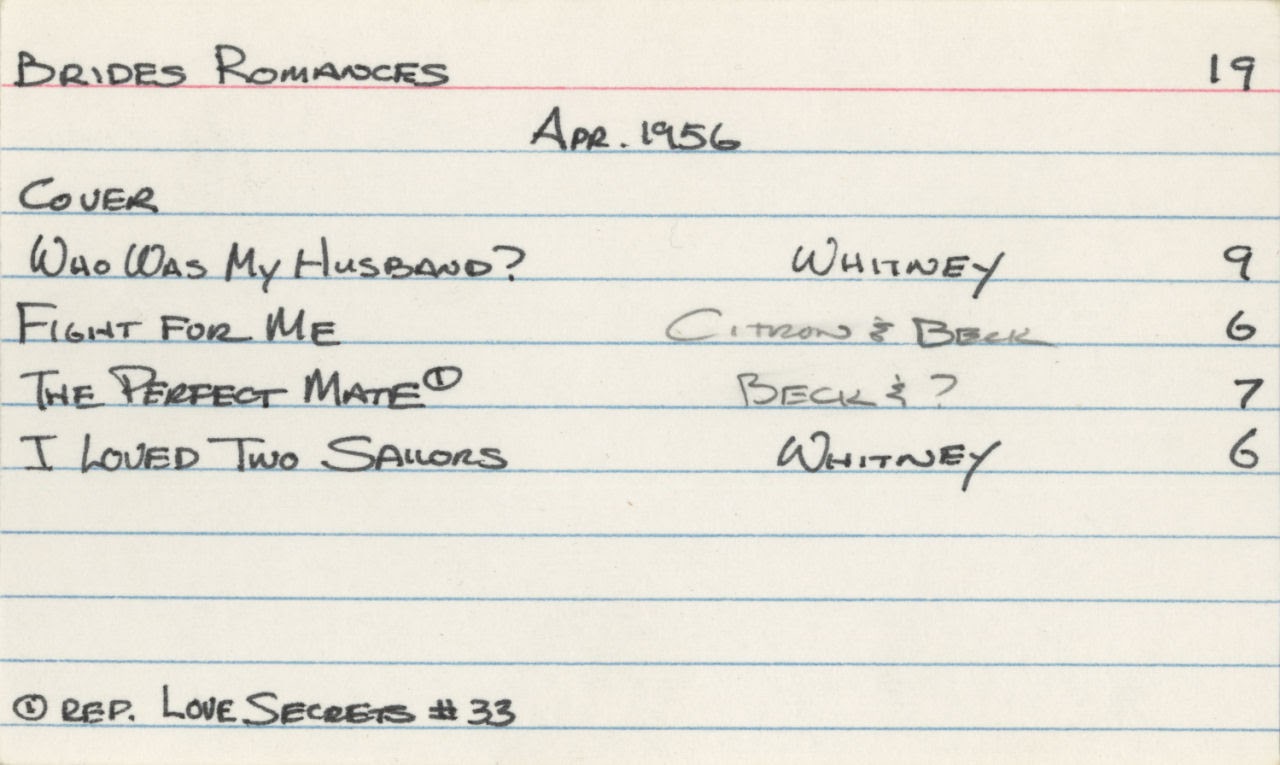 BRIDES ROMANCES 19
APR. 1956
COVER
WHO WAS MY HUSBAND? WHITNEY 9
FIGHT FOR ME CITRON & BECK 6
THE PERFECT MATE① BECK & ? 7
I LOVED TWO SAILORS WHITNEY 6
① REP. LOVE SECRETS #33